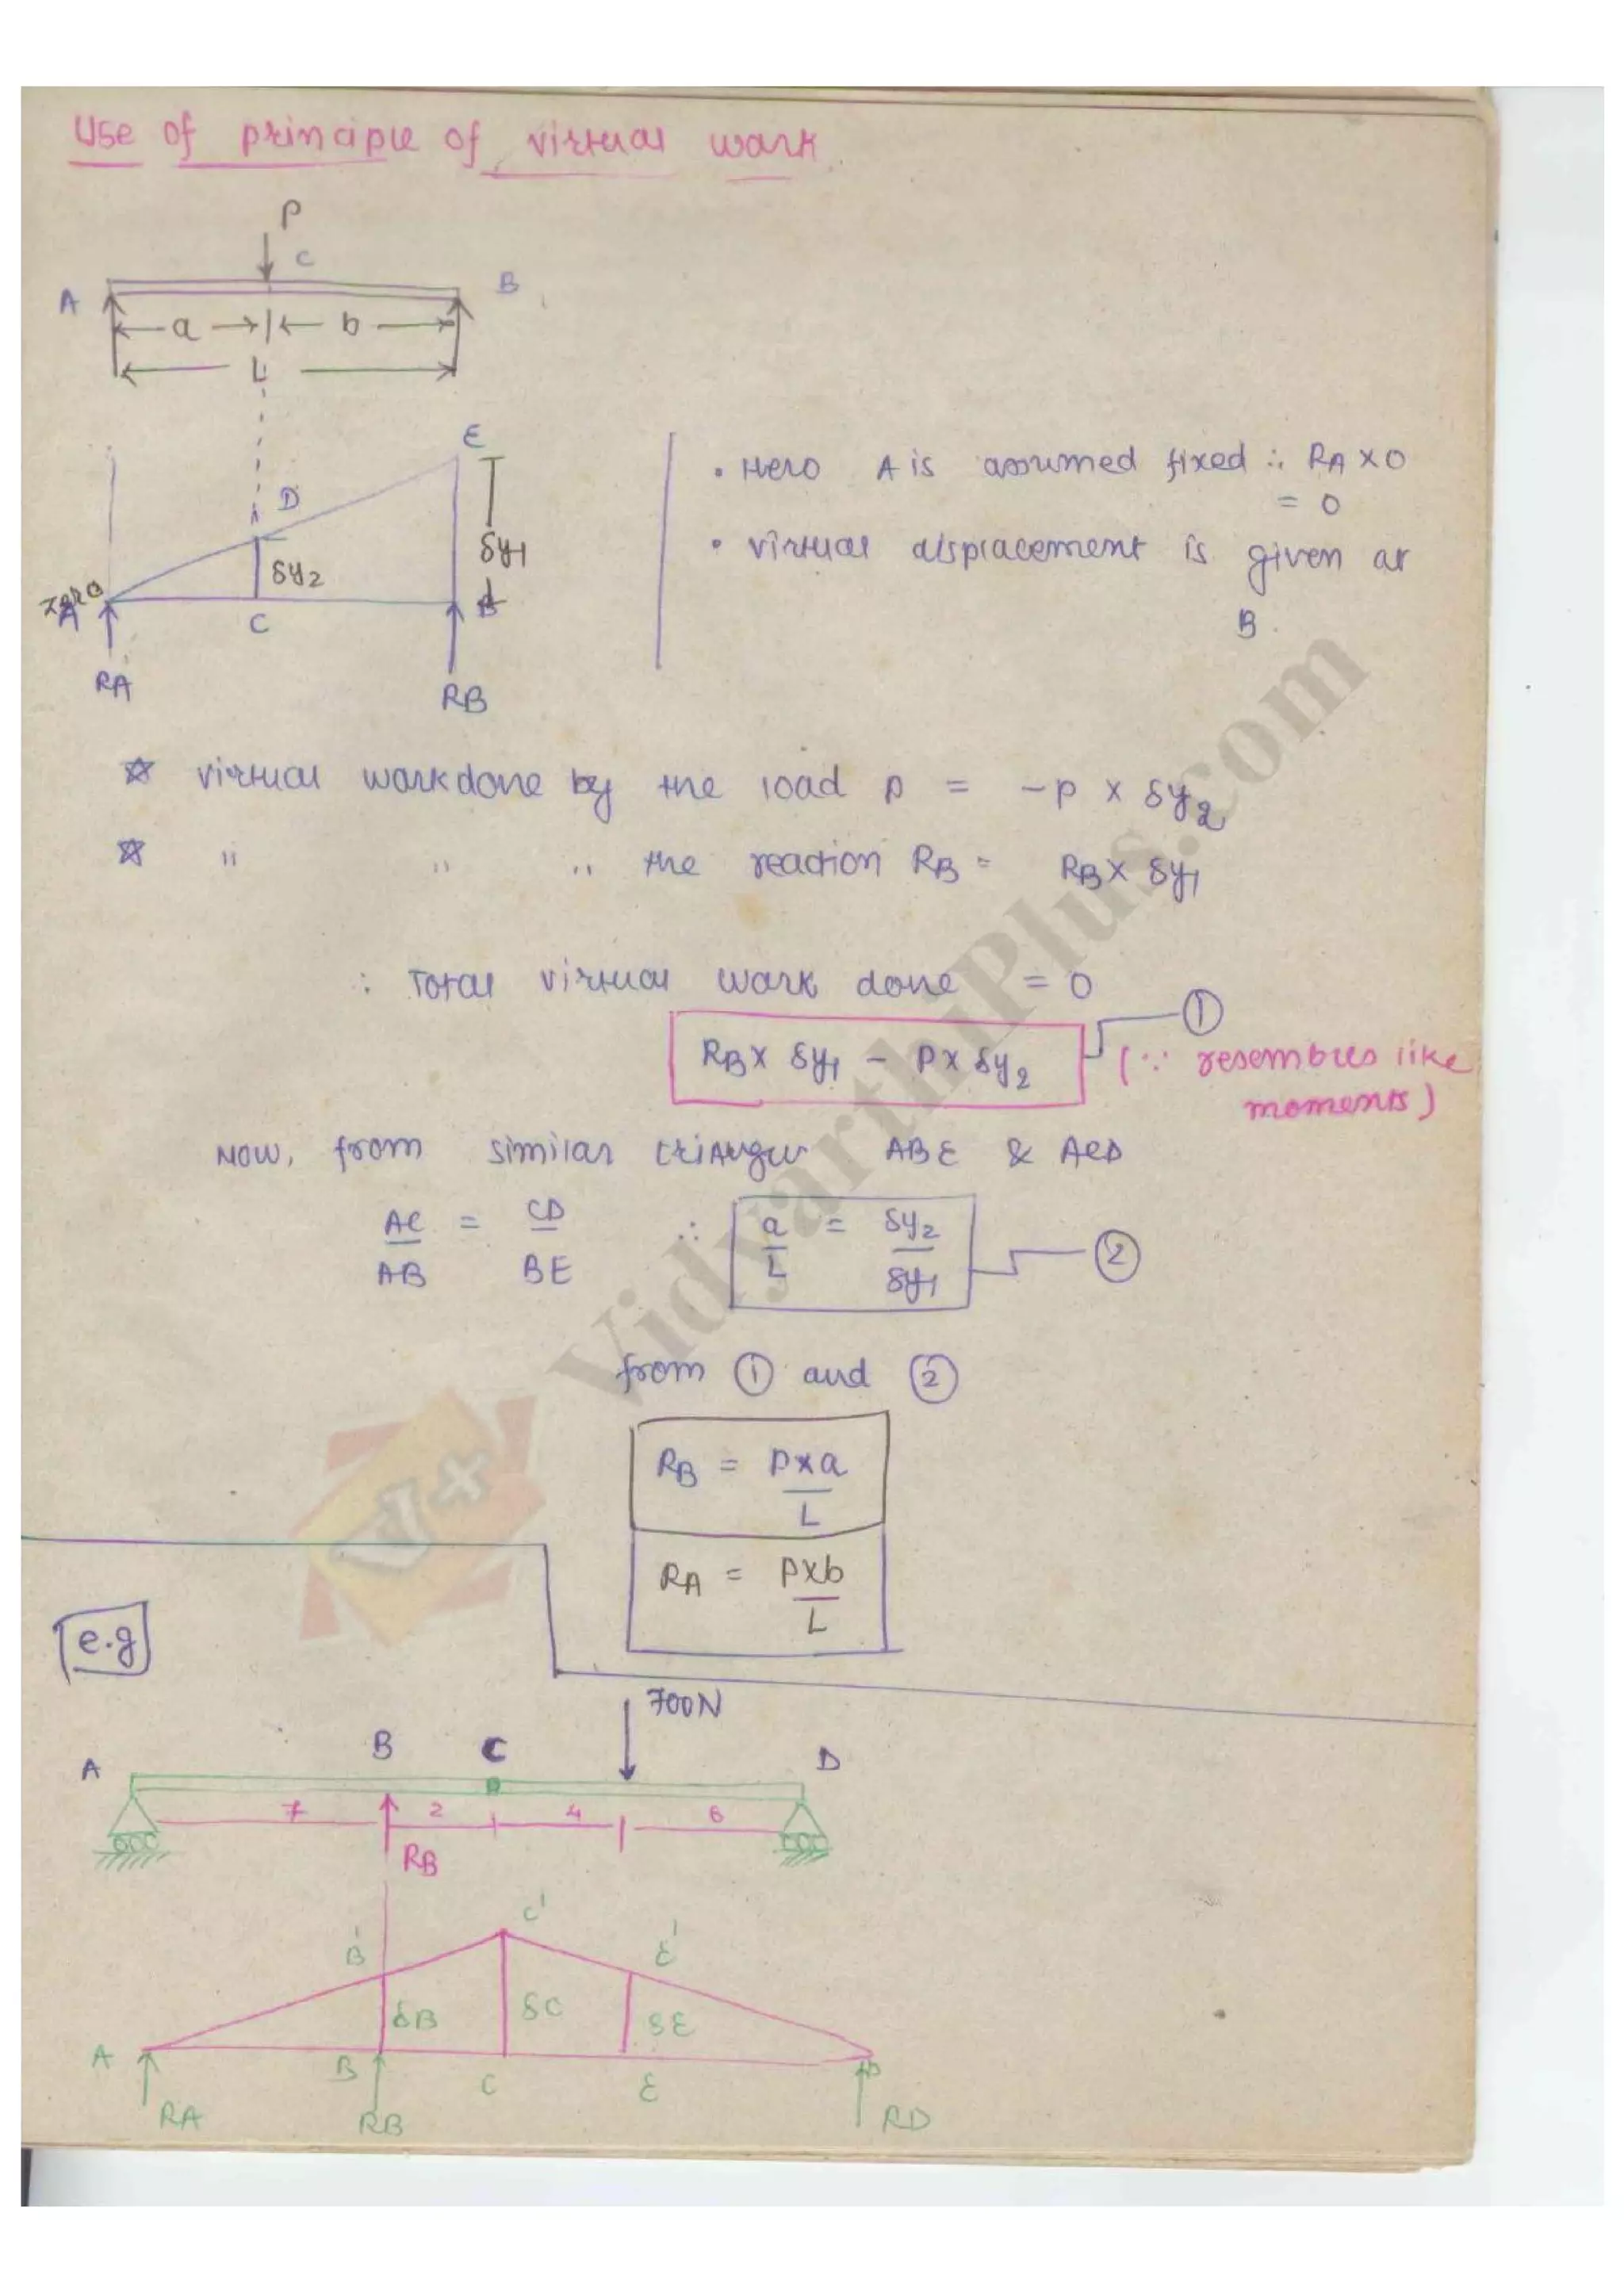 Use of principle of virtual work
P
C
A
B
a
b
L
E
D
δy2
δy1
zero
A
C
B
RA
RB
• Here A is assumed fixed ∴ RA × 0
= 0
• virtual displacement is given at
B.
☆ virtual workdone by the load P = -P × δy2
☆ " " " the reaction RB = RB × δy1
∴ Total virtual work done = 0
RB × δy1 - P × δy2
1
(∵ resembles like
moments)
Now, from similar triangles ABE & ACD
AC = CD
AB BE
∴ a = δy2
L δy1
2
from 1 and 2
RB = P×a
L
RA = P×b
L
V+
VidyarthiPlus.com
e.g
700N
A
B
C
D
7
2
4
6
RB
B'
C'
E'
δB
δC
δE
A
B
C
E
D
RA
RB
RD